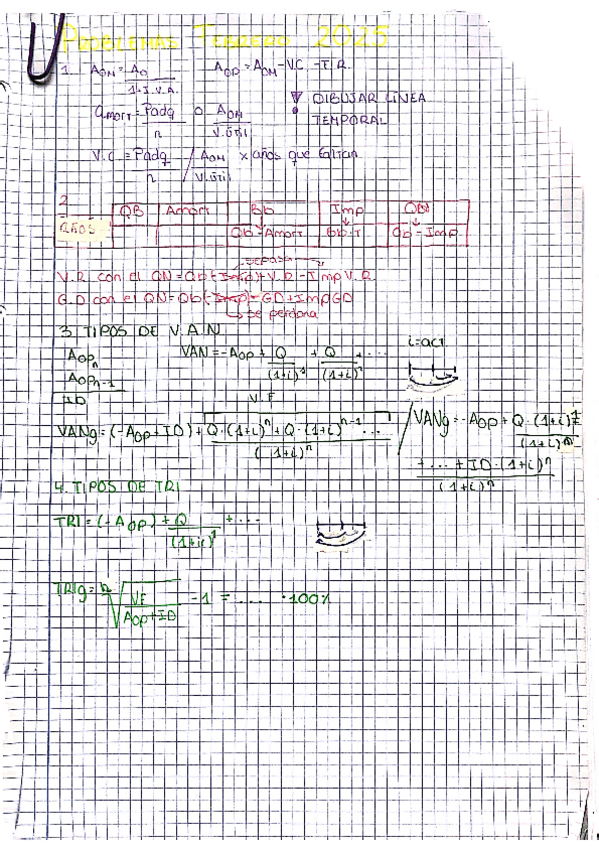 PROBLEMAS FEBRERO 2025
1. AON = AO / 1+I.V.A. AOP = AON - V.C. - T.R.
amort = Padq / n o AON / V.útil ! DIBUJAR LÍNEA TEMPORAL
V.C. = Padq / n / AON / V.útil x años que faltan
2
AÑOS QB Amort Bb Imp QN
Qb-Amort Bb·t Qb-Imp
separa
V.R con el QN = Qb(-Imp)+V.R-Imp V.R
G.D con el QN = Qb(-Imp)-GD+Imp GD
se perdona
3. TIPOS DE V.A.N
Aopn VAN = -Aop + Q / (1+i)¹ + Q / (1+i)² + ... i=act
Aopn-1
V.F
VANg = (-Aop+ID) + Q·(1+i)ⁿ+Q·(1+i)ⁿ⁻¹ ... / (1+i)ⁿ / VANg = -Aop + Q·(1+i) / (1+i)ⁿ
+ ... + ID·(1+i)ⁿ / (1+i)ⁿ
4. TIPOS DE TRI
TRI = (-Aop) + Q / (1+i)¹ + ...
TRIg = ⁿ√ VF / Aop+ID - 1 = .... ·100%